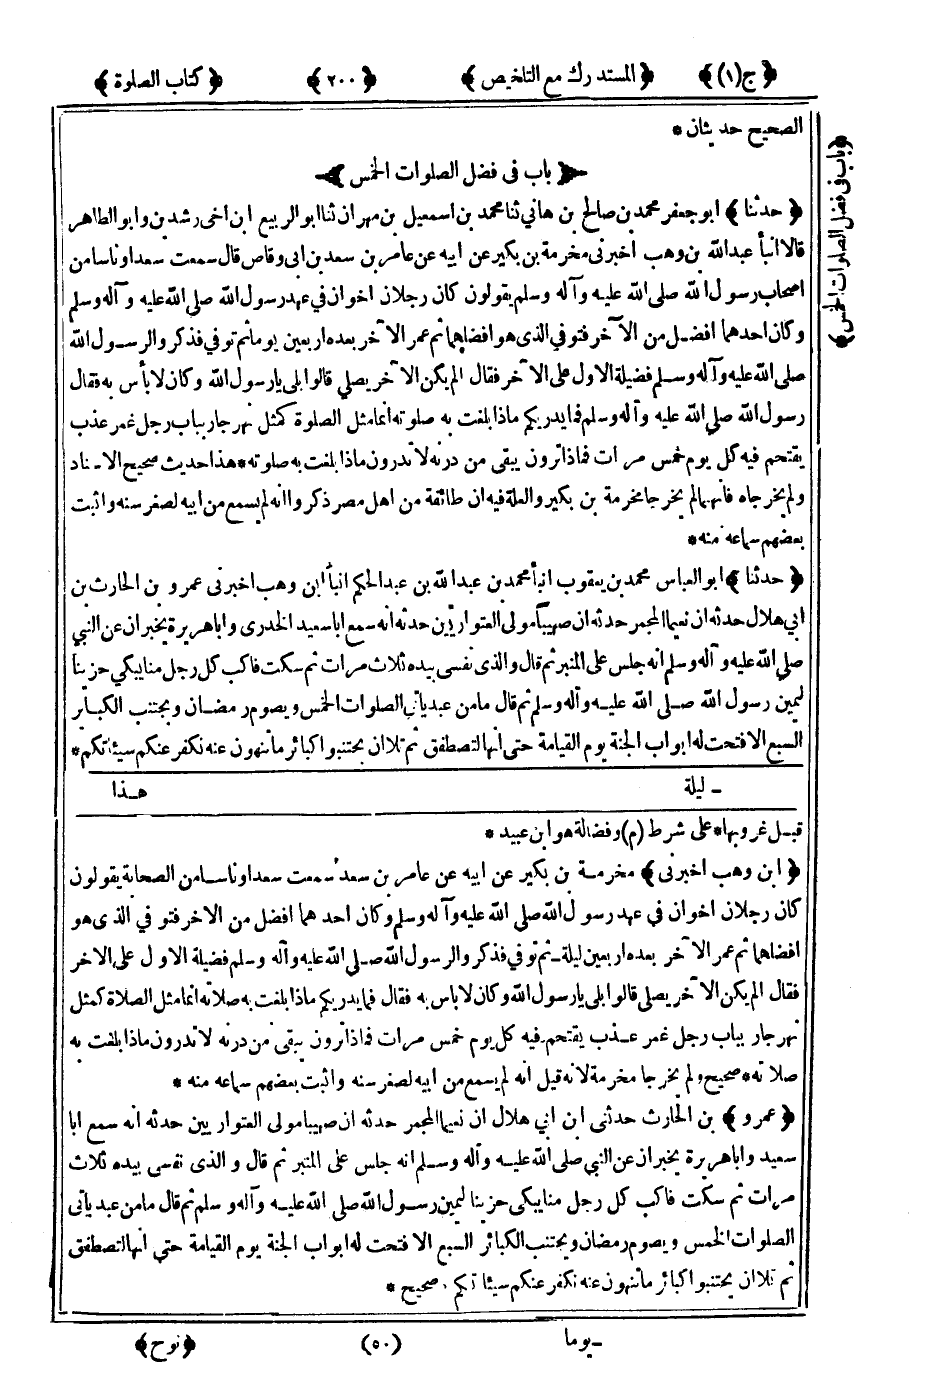 ﴿ ج(١) ﴾ ﴿ المستدرك مع التلخيص ﴾ ﴿ ٢٠٠ ﴾ ﴿ كتاب الصلوة ﴾
الصحيح حديثان *
باب فى فضل الصلوات الخمس
﴿ حدثنا ﴾ ابو جعفر محمد بن صالح بن هاني ثنا محمد بن اسمعيل بن مهران ثنا ابو الربيع ابن اخى رشدين وابو الطاهر
قالا انبأ عبدالله بن وهب اخبرنى مخرمة بن بكير عن ابيه عن عامر بن سعد بن ابى وقاص قال سمعت سعدا وناسا من
اصحاب رسول الله صلى الله عليه وآله وسلم يقولون كان رجلان اخوان في عهد رسول الله صلى الله عليه وآله وسلم
وكان احدهما افضل من الآخر فتوفي الذى هو افضلهما ثم عمر الآخر بعده اربعين يوما ثم توفي فذكروا لرسول الله
صلى الله عليه وآله وسلم فضيلة الاول على الآخر فقال الم يكن الآخر يصلي قالوا بلى يا رسول الله وكان لا بأس به فقال
رسول الله صلى الله عليه وآله وسلم فما يدريكم ماذا بلغت به صلوته انما مثل الصلوة كمثل نهر جار بباب رجل غمر عذب
يقتحم فيه كل يوم خمس مرات فماذا ترون يبقى من درنه لا تدرون ماذا بلغت به صلوته * هذا حديث صحيح الاسناد
ولم يخرجاه فانهما لم يخرجا مخرمة بن بكير والعلة فيه ان طائفة من اهل مصر ذكروا انه لم يسمع من ابيه لصغر سنه واثبت
بعضهم سماعه منه *
﴿ حدثنا ﴾ ابو العباس محمد بن يعقوب انبأ محمد بن عبدالله بن عبدالحكم انبأ ابن وهب اخبرنى عمرو بن الحارث بن
ابي هلال حدثه ان نعيما المجمر حدثه ان صهيبا مولى العتوارين حدثه انه سمع ابا سعيد الخدرى وابا هريرة يخبران عن النبي
صلى الله عليه وآله وسلم انه جلس على المنبر ثم قال والذى نفسى بيده ثلاث مرات ثم سكت فاكب كل رجل منا يبكي حزينا
ليمين رسول الله صلى الله عليه وآله وسلم ثم قال ما من عبد ياتى الصلوات الخمس ويصوم رمضان ويجتنب الكبائر
السبع الا فتحت له ابواب الجنة يوم القيامة حتى انها لتصطفق ثم تلا ان يجتنبوا كبائر ما تنهون عنه نكفر عنكم سيئاتكم *
ـ ليلة هـذا
قبل غروبها * على شرط (م) وفضالة هو ابن عبيد *
﴿ ابن وهب اخبرنى ﴾ مخرمة بن بكير عن ابيه عن عامر بن سعد سمعت سعدا وناسا من الصحابة يقولون
كان رجلان اخوان في عهد رسول الله صلى الله عليه وآله وسلم وكان احدهما افضل من الاخر فتوفي الذى هو
افضلهما ثم عمر الآخر بعده اربعين ليلة ـ ثم توفي فذكروا لرسول الله صلى الله عليه وآله وسلم فضيلة الاول على الاخر
فقال الم يكن الآخر يصلي قالوا بلى يا رسول الله وكان لا باس به فقال فما يدريكم ماذا بلغت به صلاته انما مثل الصلاة كمثل
نهر جار بباب رجل غمر عذب يقتحم فيه كل يوم خمس مرات فماذا ترون يبقى من درنه لا تدرون ماذا بلغت به
صلاته * صحيح ولم يخرجا مخرمة لانه قيل انه لم يسمع من ابيه لصغر سنه واثبت بعضهم سماعه منه *
﴿ عمرو ﴾ بن الحارث حدثنى ابن ابي هلال ان نعيما المجمر حدثه ان صهيبا مولى العتواريين حدثه انه سمع ابا
سعيد وابا هريرة يخبران عن النبي صلى الله عليه وآله وسلم انه جلس على المنبر ثم قال والذى نفسى بيده ثلاث
مرات ثم سكت فاكب كل رجل منا يبكى حزينا ليمين رسول الله صلى الله عليه وآله وسلم ثم قال ما من عبد ياتى
الصلوات الخمس ويصوم رمضان ويجتنب الكبائر السبع الا فتحت له ابواب الجنة يوم القيامة حتى انها لتصطفق
ثم تلا ان يجتنبوا كبائر ما تنهون عنه نكفر عنكم سيئاتكم . صحيح *
ـ يوما (٥٠) ﴿ نوح ﴾
﴿ باب فى فضل الصلوات الخمس ﴾